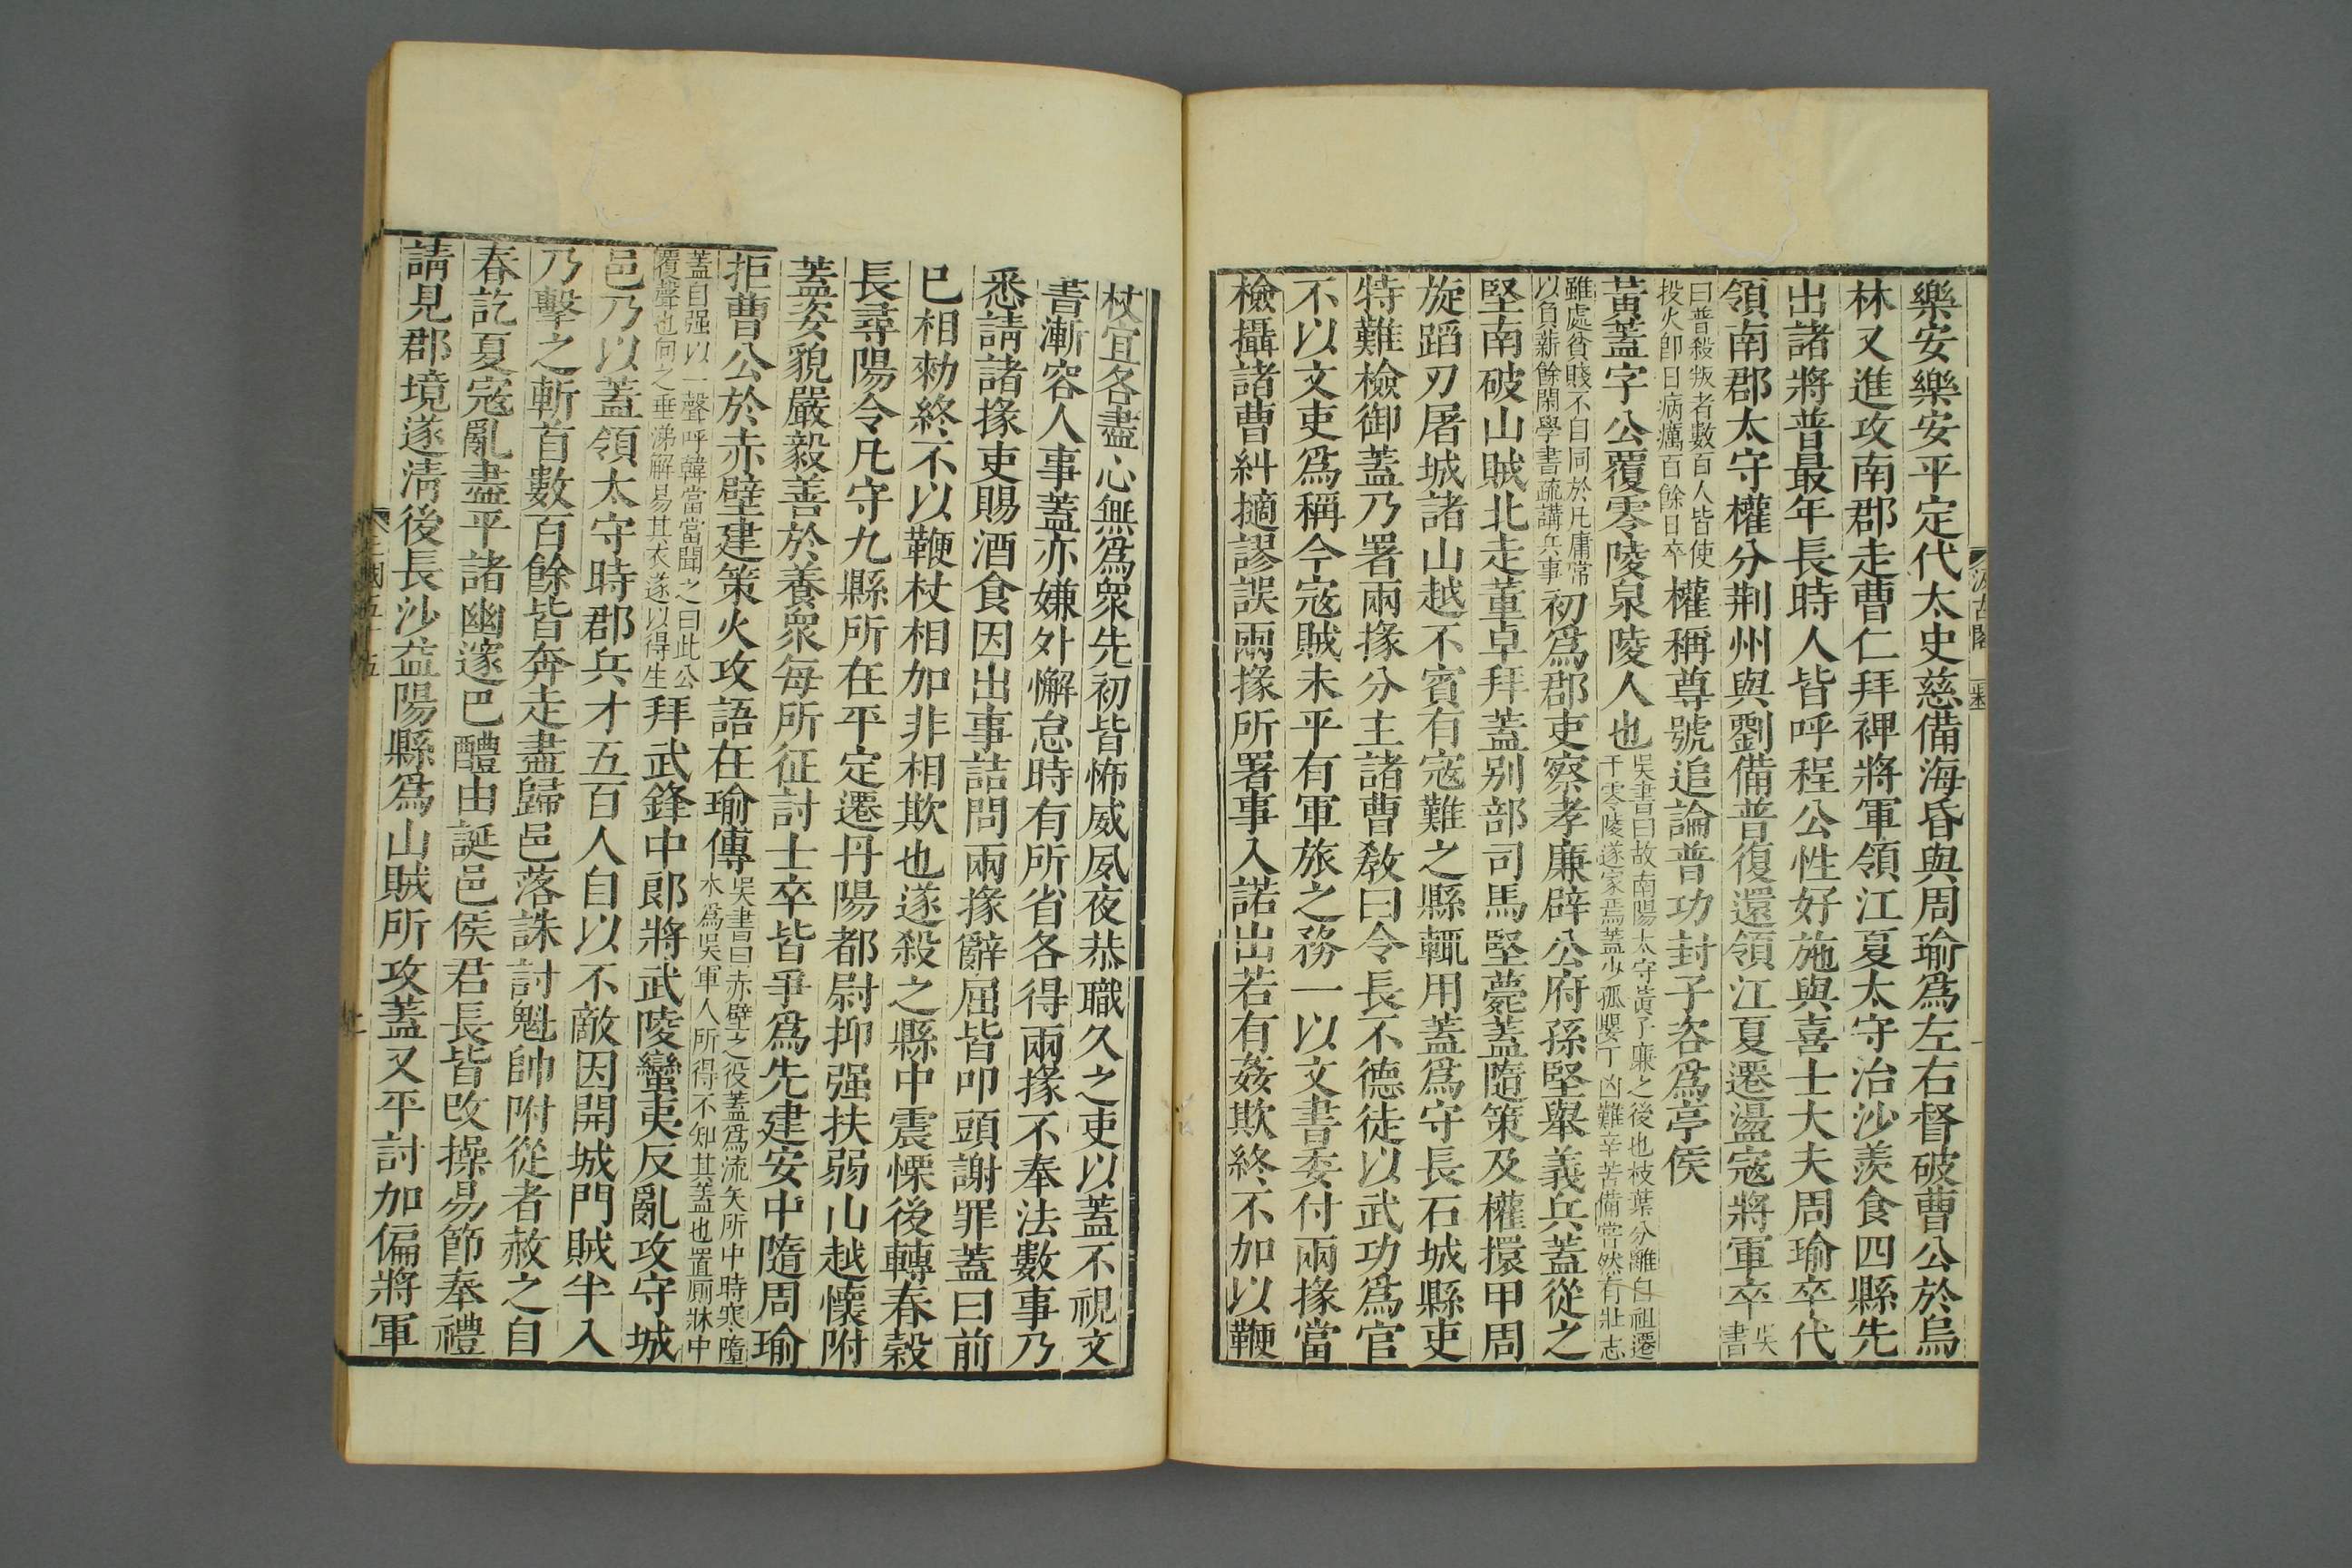 樂安樂安平定代太史慈備海昏與周瑜爲左右督破曹公於烏
林又進攻南郡走曹仁拜裨將軍領江夏太守治沙羨食四縣先
出諸將普最年長時人皆呼程公性好施與喜士大夫周瑜卒代
領南郡太守權分荆州與劉備普復還領江夏遷盪寇將軍卒吳書
曰普殺叛者數百人皆使投火卽日病癘百餘日卒權稱尊號追論普功封子咨爲亭侯
黃蓋字公覆零陵泉陵人也吳書曰故南陽太守黃子廉之後也枝葉分離自祖遷于零陵遂家焉蓋少孤嬰丁凶難辛苦備嘗然有壯志
雖處貧賤不自同於凡庸常以負薪餘閑學書疏講兵事初爲郡吏察孝廉辟公府孫堅舉義兵蓋從之
堅南破山賊北走董卓拜蓋别部司馬堅薨蓋隨策及權擐甲周
旋蹈刃屠城諸山越不賓有寇難之縣輒用蓋爲守長石城縣吏
特難檢御蓋乃署兩掾分主諸曹敎曰令長不德徒以武功爲官
不以文吏爲稱今寇賊未平有軍旅之務一以文書委付兩掾當
檢攝諸曹糾擿謬誤兩掾所署事入諾出若有姦欺終不加以鞭
汲古閣
杖宜各盡心無爲衆先初皆怖威夙夜恭職久之吏以蓋不視文
書漸容人事蓋亦嫌外懈怠時有所省各得兩掾不奉法數事乃
悉請諸掾吏賜酒食因出事詰問兩掾辭屈皆叩頭謝罪蓋曰前
已相勑終不以鞭杖相加非相欺也遂殺之縣中震慄後轉春穀
長尋陽令凡守九縣所在平定遷丹陽都尉抑强扶弱山越懷附
蓋姿貌嚴毅善於養衆每所征討士卒皆爭爲先建安中隨周瑜
拒曹公於赤壁建策火攻語在瑜傳吳書曰赤壁之役蓋爲流矢所中時寒墮水爲吳軍人所得不知其蓋也置廁牀中
蓋自强以一聲呼韓當當聞之曰此公覆聲也向之垂涕解易其衣遂以得生拜武鋒中郎將武陵蠻夷反亂攻守城
邑乃以蓋領太守時郡兵才五百人自以不敵因開城門賊半入
乃擊之斬首數百餘皆奔走盡歸邑落誅討魁帥附從者赦之自
春訖夏寇亂盡平諸幽邃巴醴由誕邑侯君長皆改操易節奉禮
請見郡境遂淸後長沙益陽縣爲山賊所攻蓋又平討加偏將軍